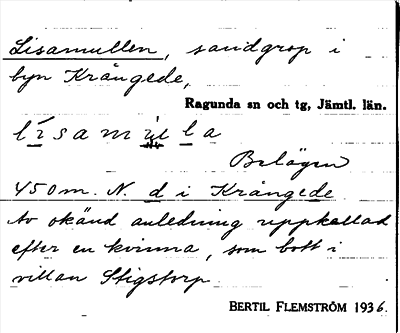 Lisamullen, sandgrop i
byn Krångede,
Ragunda sn och tg, Jämtl. län.
Belägen
450 m. N. d i Krångede
Av okänd anledning uppkallad
efter en kvinna, som bott i
villan Stigstorp.
BERTIL FLEMSTRÖM 1936.